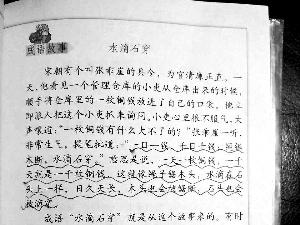 成语故事
水滴石穿
宋朝有个叫张乖崖的县令，为官清廉正直。一
天，他看见一个管理仓库的小吏从仓库出来的时候，
顺手将仓库里的一枚铜钱放进了自己的口袋。他立
即派人把这个小吏抓来询问。小吏心里很不服气，大
声嚷道：“一枚铜钱有什么大不了的？”张乖崖一听，
非常生气，提笔批道：“一日一钱，千日千钱；绳锯
木断，水滴石穿。”意思是说，一天一枚铜钱，一千
天就是一千枚铜钱。这就像绳子锯木头，水滴在石
头上一样，日久天长，木头也会被锯断，石头也会
被滴穿。
成语“水滴石穿”就是从这个故事来的。有时